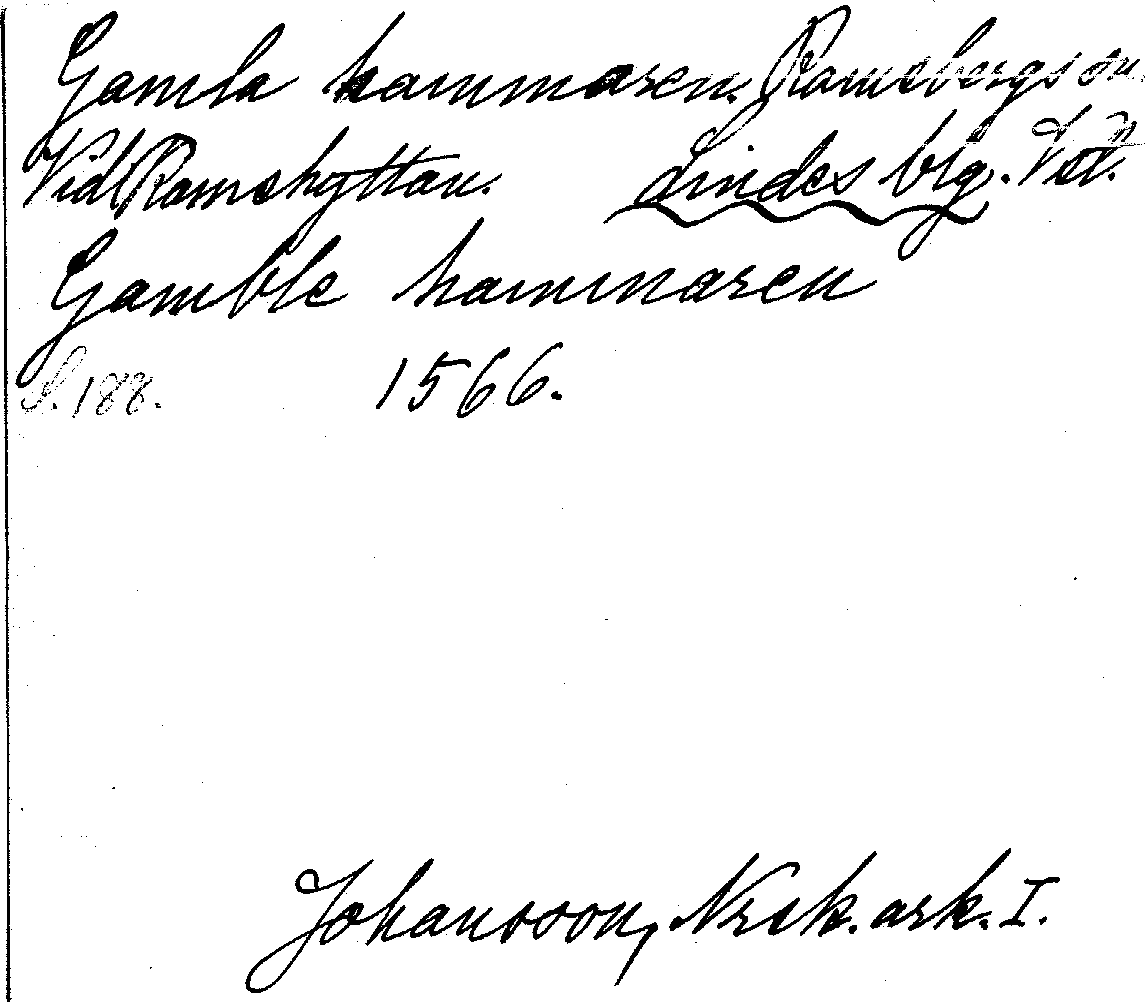 Gamla hammaren. Ramsbergs sn.
Vid Ramshyttan. Lindes blg. Vstl.
Gamble hammaren
S. 188. 1566.
Johansson, Nrck. ark. I.